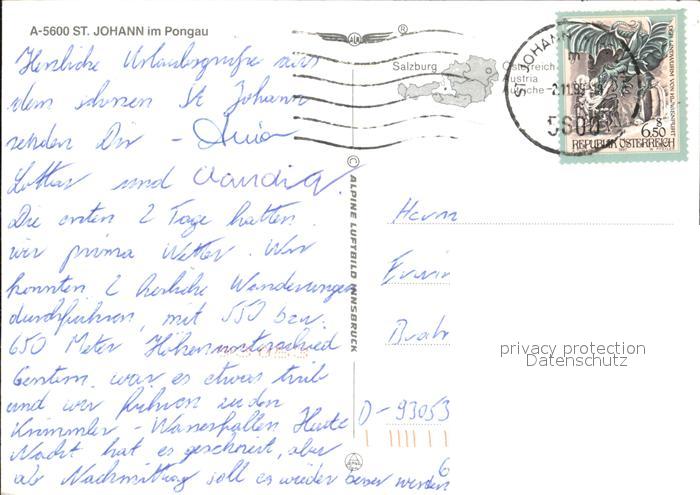 A-5600 ST. JOHANN im Pongau
®
Herzliche Urlaubsgrüße aus
dem schönen St. Johann
senden Dir -
Lothar und Claudia.
Die ersten 2 Tage hatten
wir prima Wetter. Wir
konnten 2 herliche Wanderungen
durchführen, mit 550 bzw.
650 Meter Höhenunterschied
Gestern war es etwas trüb
und wir fuhren zu den
Krimmler-Wasserfällen Heute
Nacht hat es geschneit, aber
ab Nachmittag soll es wieder besser werden
© ALPINE LUFTBILD INNSBRUCK
Salzburg
Österreich
Austria
Autriche
ST. JOHANN
5600
6.50
REPUBLIK ÖSTERREICH
Herrn
Erwin
D-93053
privacy protection
Datenschutz
6